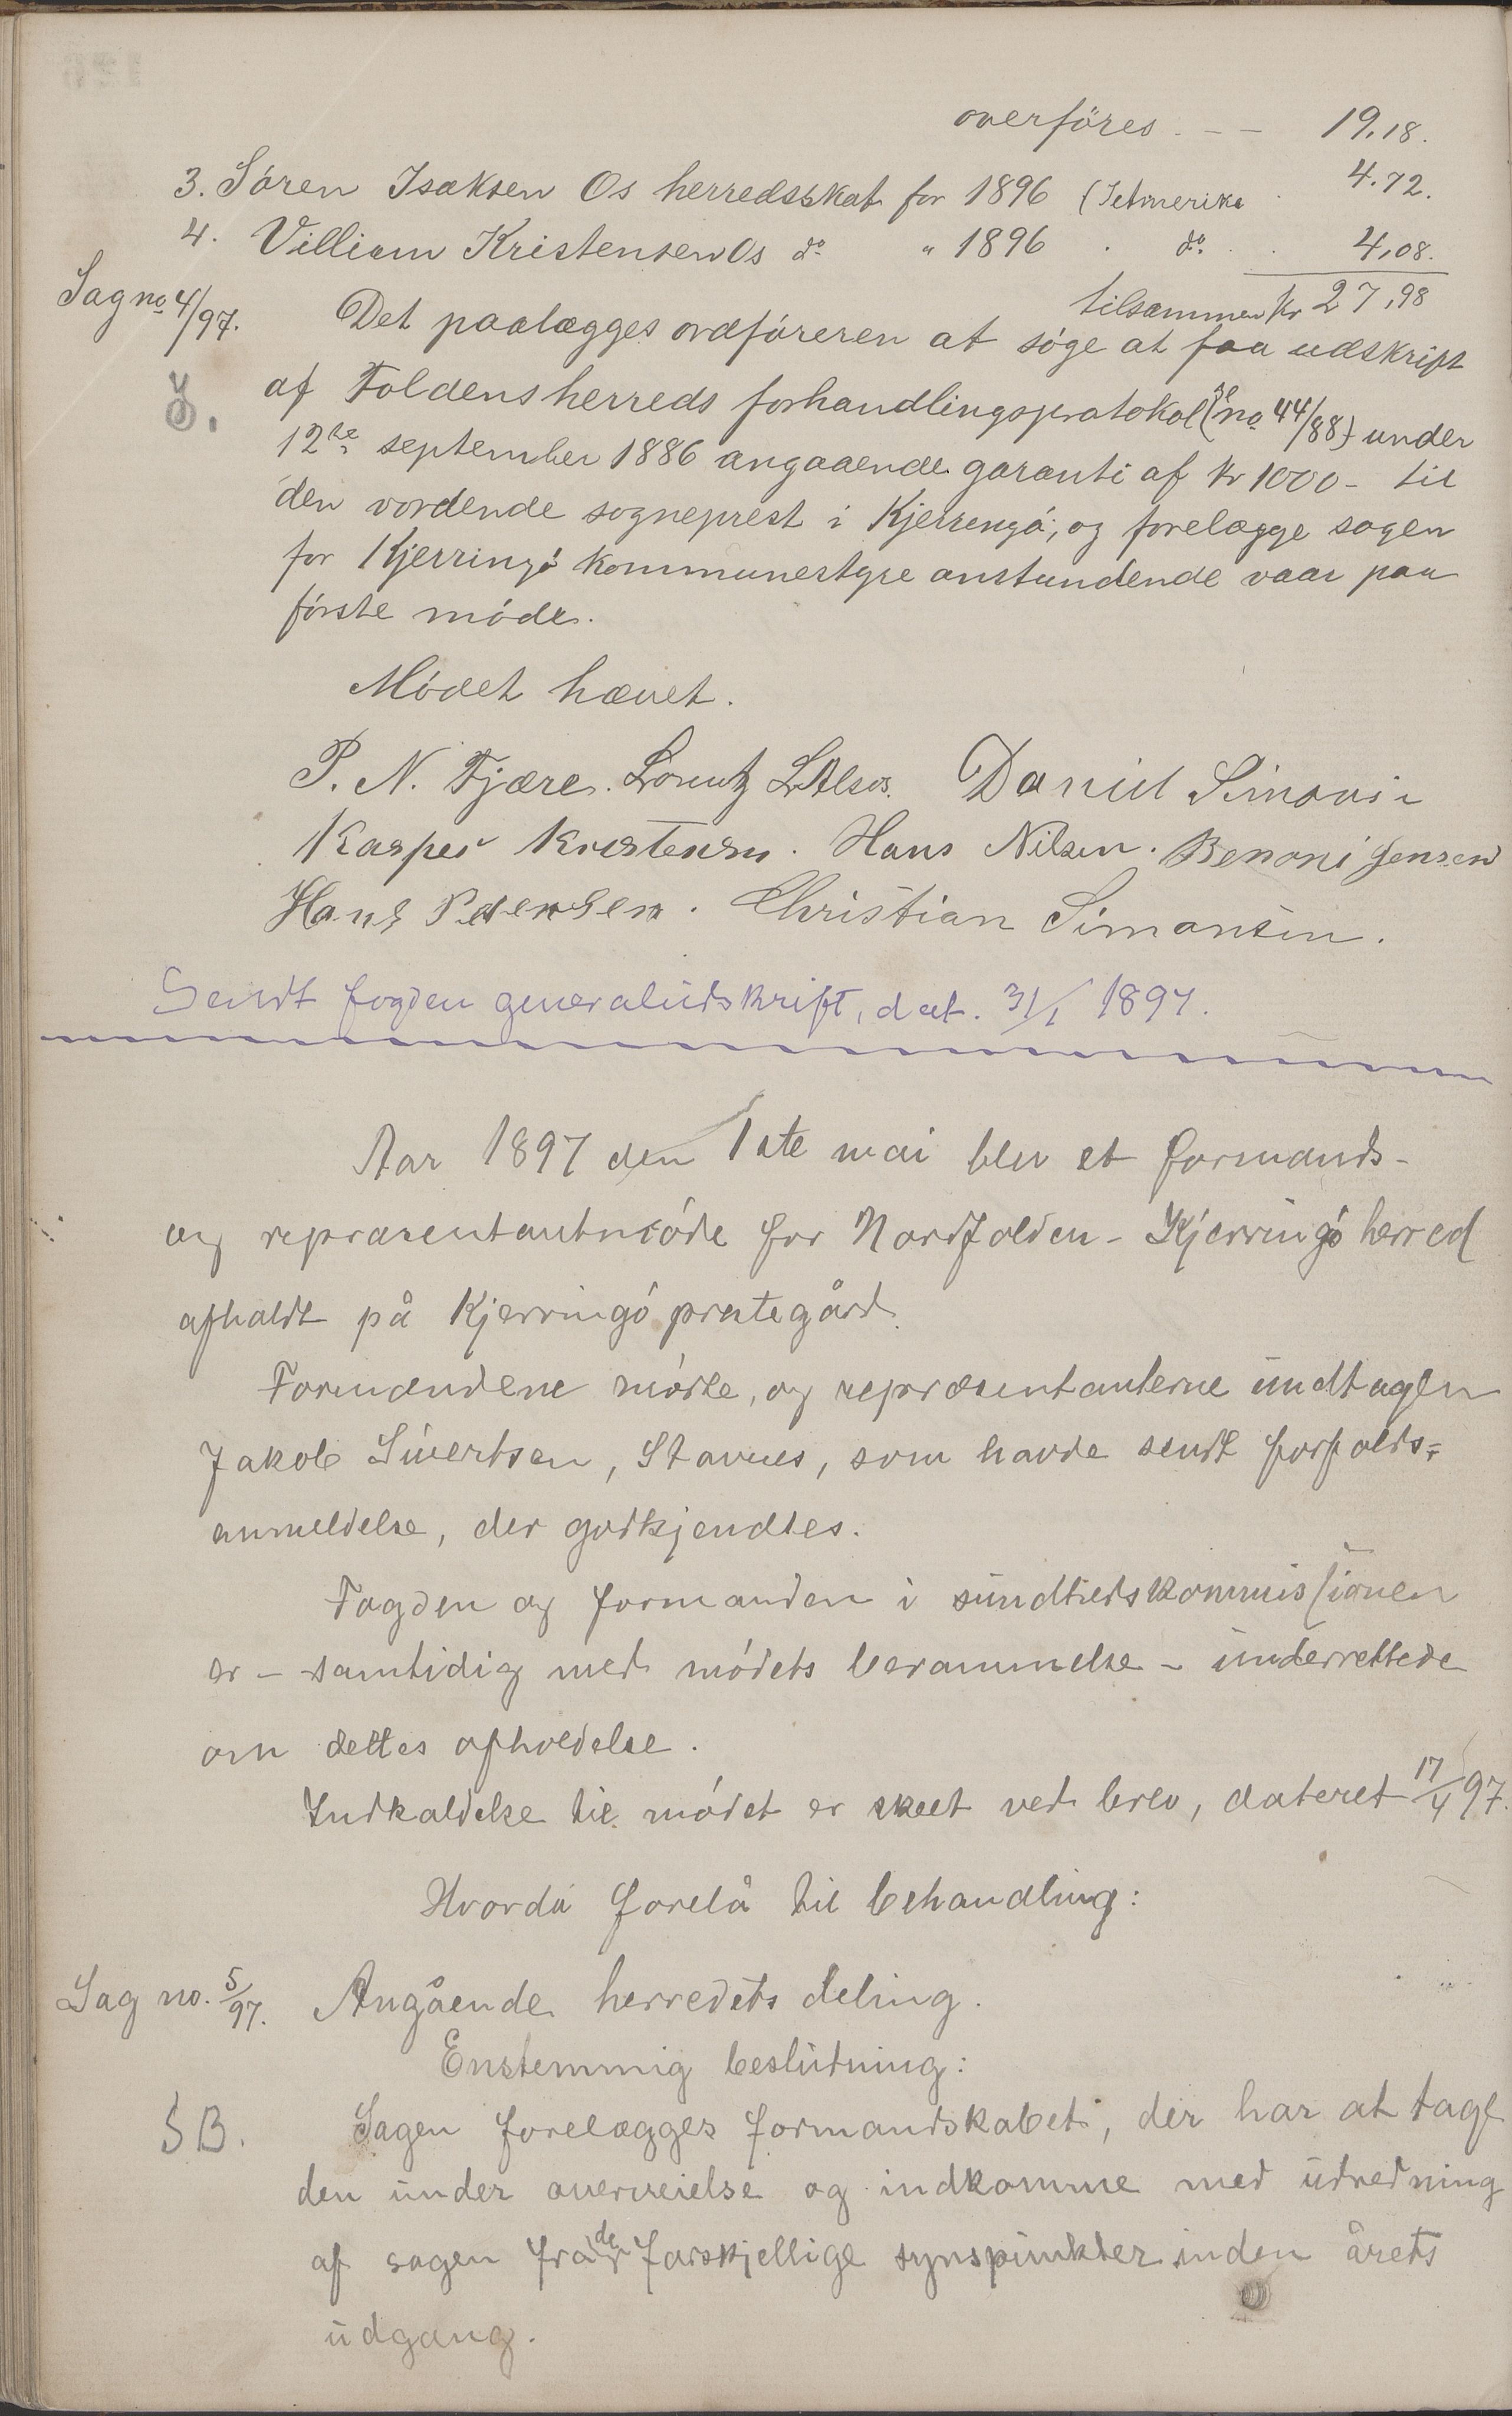 overföres - - - 19,18.
3. Sören Isaksen Os herredsskat for 1896 (I Amerika 4.72.
4. Villiam Kristensen Os do " 1896 . do. 4,08.
tilsammen kr 27,98
Sag no 4/97. Det paalægges ordföreren at söge at faa udskript
af Foldens herreds forhandlingsprotokol (no 44/88) under
12te september 1886 angaaende garanti af kr 1000 - til
den vordende sogneprest i Kjerringö, og forelægge sagen
for Kjerringö kommunestyre anstundende vaar paa
förste möde.
Mödet hævet.
P. N. Fjære. Lorentz L. Alsos. Daniel Simonsen
Kasper Kristensen. Hans Nilsen. Benoni Jensen
Hans Pedersen. Christian Simonsen.
Sendt fogden generaludskrift, dat. 31/1 1897.
Aar 1897 den 1ste mai blev et formands-
og repræsentantmöde for Nordfolden-Kjerringö herred
afholdt på Kjerringö prestegård.
Formændene mödte, og repræsentanterne undtagen
Jakob Sivertsen, Stavnes, som havde sendt forfalds-
anmeldelse, der godkjendtes.
Fogden og formanden i sundhedskommissionen
er - samtidig med mödets berammelse - underrettede
om dettes afholdelse.
Indkaldelse til mödet er skeet ved brev, dateret 17/4 97.
Hvorda forelå til behandling:
Sag no. 5/97. Angående herredets deling.
Enstemmig beslutning:
SB. Sagen forelægges formandskabet, der har at tage
den under overveielse og indkomme med udredning
af sagen fra de forskjellige synspunkter inden årets
udgang.